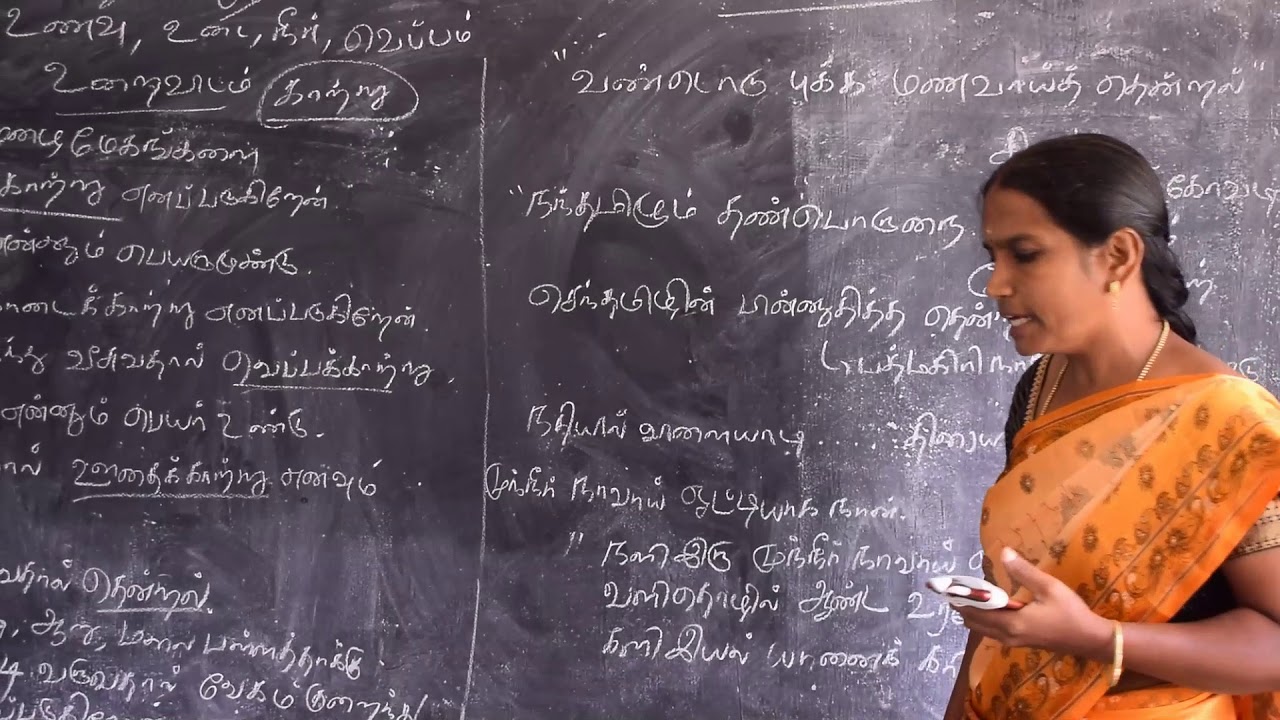 உணவு, உடை, நீர், வெப்பம்
உறைவிடம் காற்று
மேகங்களை
காற்று எனப்படுகிறேன்.
என்னும் பெயருமுண்டு.
வாடைக்காற்று எனப்படுகிறேன்.
வீசுவதால் வெப்பக்காற்று,
என்னும் பெயர் உண்டு.
ஊதைக்காற்று எனவும்
தென்றல்.
ஆறு, மலை பள்ளத்தாக்கு
வருவதால் வேகம் குறைந்து
"வண்டொடு புக்க மணவாய்த் தென்றல்"
"நந்தமிழும் தண்பொருநை
செந்தமிழின் பின்னுதித்த
பத்மகிரி
நதியில் வாளையாடி ......
முந்நீர் நாவாய் ஓட்டியாக நான்.
" நளிஇரு முந்நீர் நாவாய்
வளிதொழில் ஆண்ட
களிஇயல் யானைக்